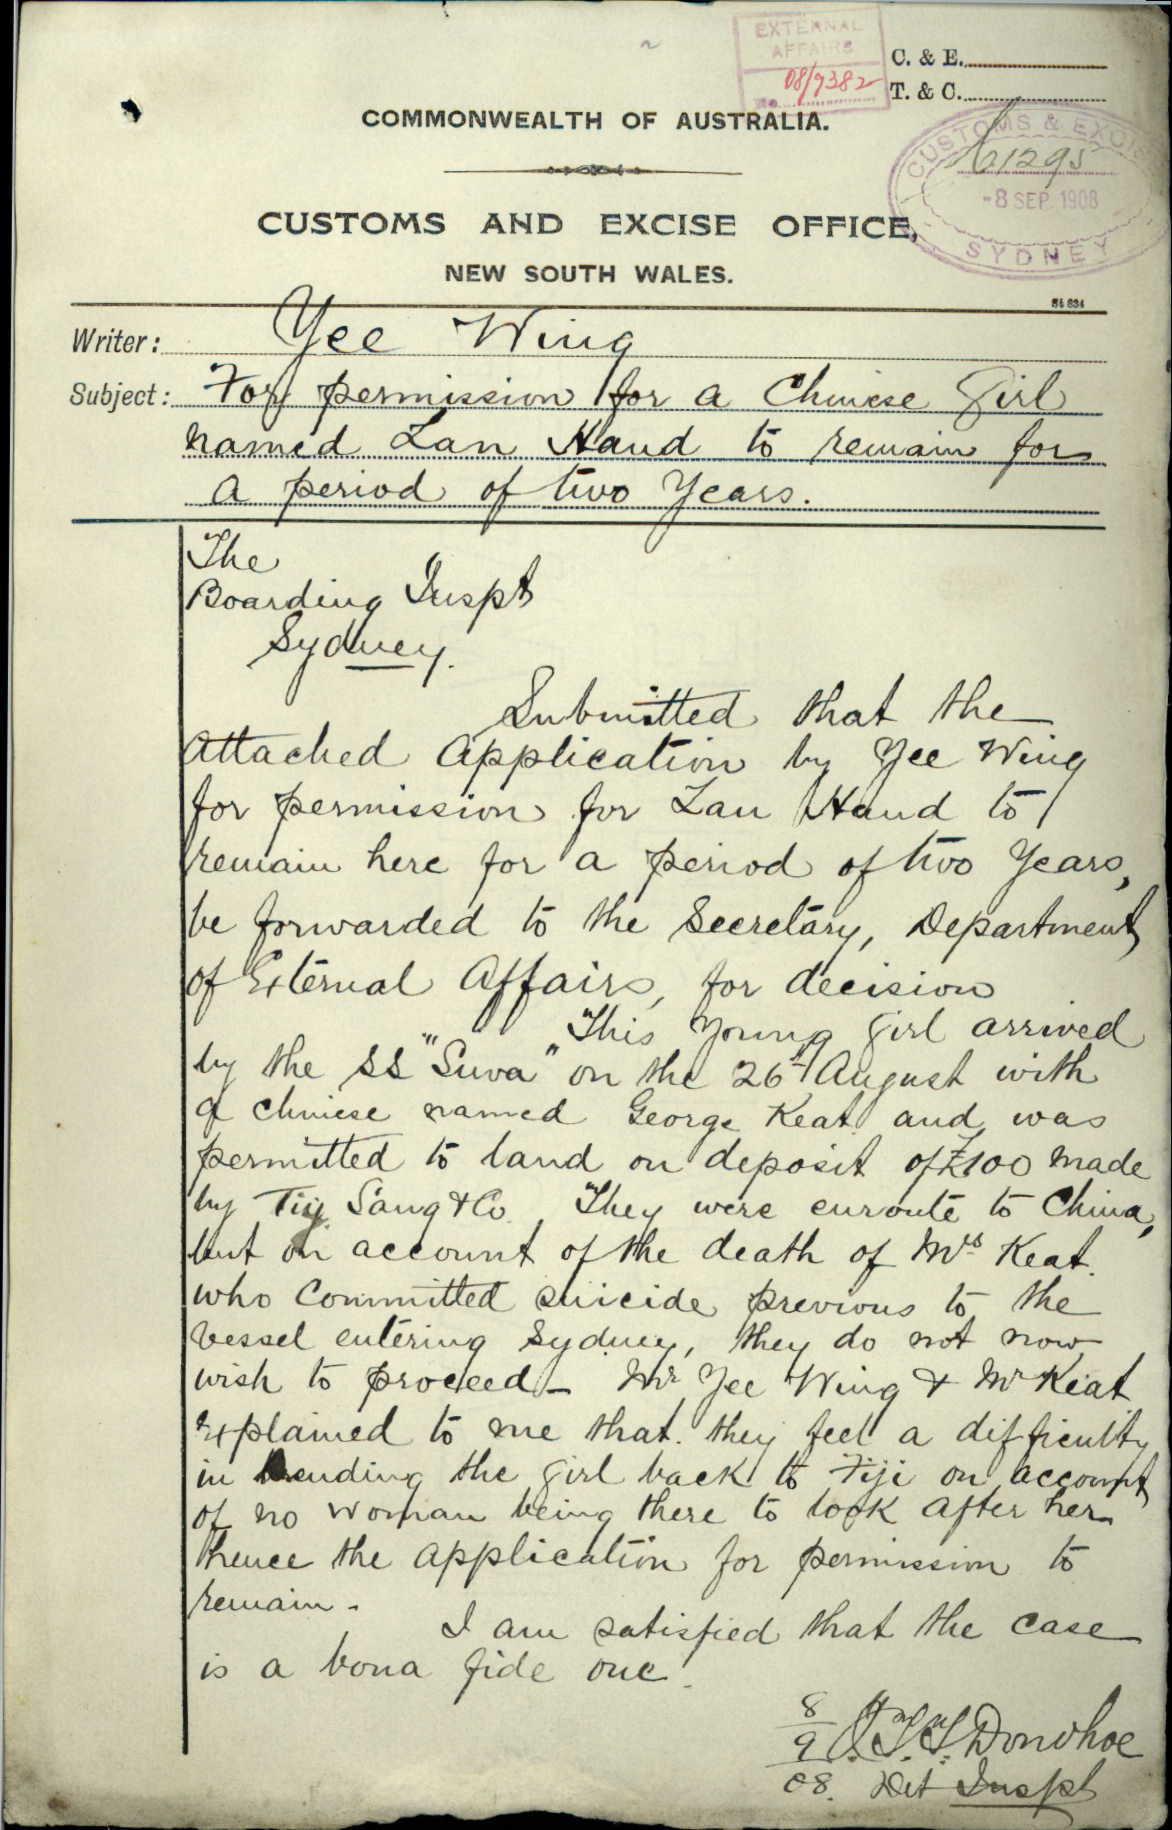 EXTERNAL
AFFAIRS
08/9382
No.
C. & E.
T. & C.
COMMONWEALTH OF AUSTRALIA.
CUSTOMS & EXCISE
1295
-8 SEP. 1908
SYDNEY
CUSTOMS AND EXCISE OFFICE,
NEW SOUTH WALES.
Writer: Yee Wing
Subject: For permission for a Chinese Girl
named Lan Hand to remain for
a period of two Years.
The
Boarding Inspt
Sydney.
Submitted that the
Attached Application by Yee Wing
for permission for Lan Hand to
remain here for a period of two Years,
be forwarded to the Secretary, Department
of External Affairs, for decision
This Young Girl arrived
by the SS "Suva" on the 26th August with
a chinese named George Keat and was
permitted to land on deposit of £100 made
by Tiy Sang & Co. They were enroute to China,
but on account of the death of Mrs Keat.
who Committed suicide previous to the
vessel entering Sydney, they do not now
wish to proceed - Mr Yee Wing & Mr Keat
explained to me that they feel a difficulty
in sending the girl back to Fiji on account
of no woman being there to look after her
hence the application for permission to
remain -
I am satisfied that the case
is a bona fide one.
8/9/08. J.T.T. Donohoe
Det Inspt